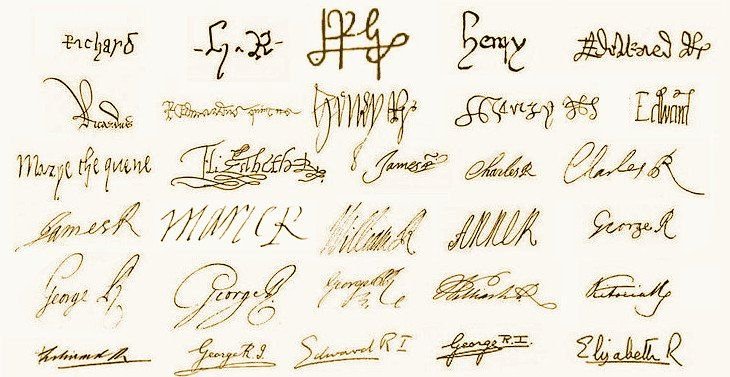 Richard H R Henry
Ricardus Henry R Edward
Marye the quene Elizabeth R James R Charles R Charles R
James R MARIE R William R ANNE R George R
George R George R George R William R Victoria R
Edward R George R.I. Edward R I George R.I. Elizabeth R